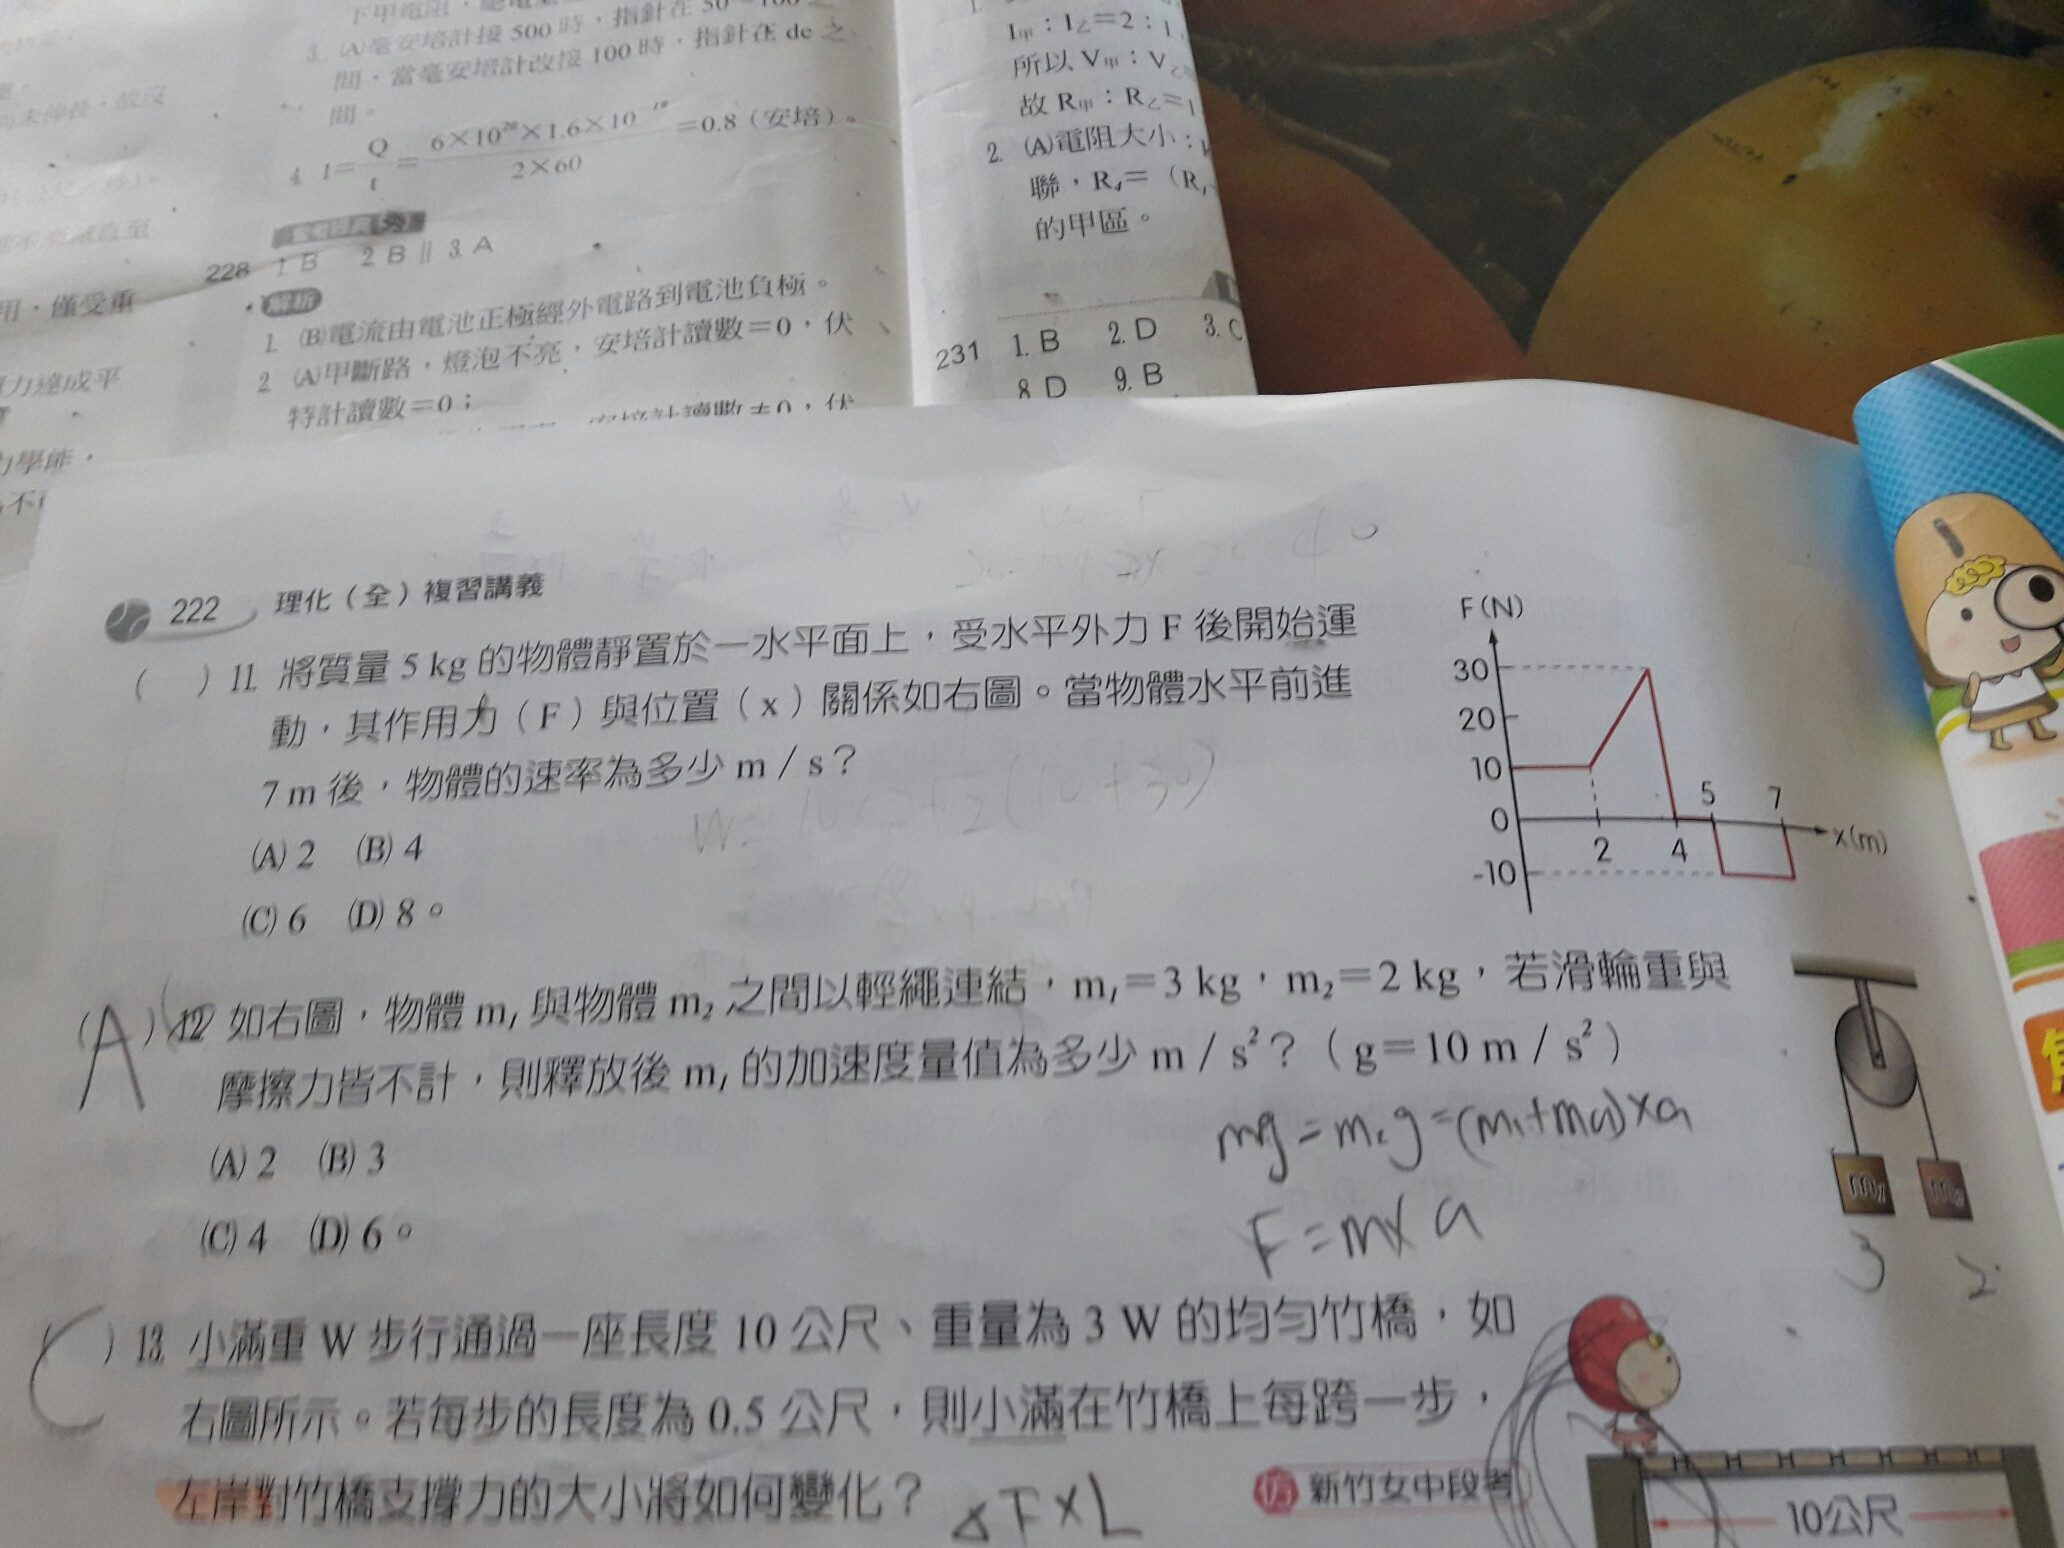 3. (A)毫安培計接 500 時，指針在 50～100 之
間，當毫安培計改接 100 時，指針在 de 之
間。
4. I＝Q/t＝6×10²⁰×1.6×10⁻¹⁹/2×60＝0.8（安培）。
228 1. B 2. B 3. A
解析
1. (B)電流由電池正極經外電路到電池負極。
2. (A)甲斷路，燈泡不亮，安培計讀數＝0，伏
特計讀數＝0；
用，僅受重
力達成平
力學能，
I甲：I乙＝2：1，
所以 V甲：V乙
故 R甲：R乙＝1
2. (A)電阻大小：
聯，
的甲區。
231 1. B 2. D 3. C
8. D 9. B
222 理化（全）複習講義
( ) 11. 將質量 5 kg 的物體靜置於一水平面上，受水平外力 F 後開始運
動，其作用力（F）與位置（x）關係如右圖。當物體水平前進
7 m 後，物體的速率為多少 m／s？
W= 10×2+2(10+30)
(A) 2 (B) 4
(C) 6 (D) 8。
F(N)
30
20
10
0
-10
2
4
5
7
x(m)
(A) 12. 如右圖，物體 m₁ 與物體 m₂ 之間以輕繩連結，m₁＝3 kg，m₂＝2 kg，若滑輪重與
摩擦力皆不計，則釋放後 m₁ 的加速度量值為多少 m／s²？（g＝10 m／s²）
(A) 2 (B) 3
(C) 4 (D) 6。
F=m×a
m₁ m₂
3 2
(C) 13. 小滿重 W 步行通過一座長度 10 公尺、重量為 3 W 的均勻竹橋，如
右圖所示。若每步的長度為 0.5 公尺，則小滿在竹橋上每跨一步，
左岸對竹橋支撐力的大小將如何變化？
△F×L
仿 新竹女中段考
10公尺